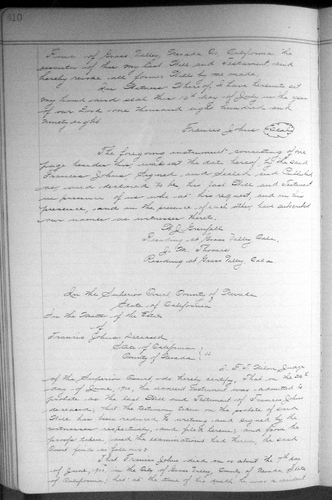 310
Town of Grass Valley, Nevada Co. California the
executor of this my last Will and Testament, and
hereby revoke all former Wills by me made.
In Witness Whereof, I have hereunto set
my hand and seal this day of in the year
of our Lord one thousand eight hundred and
ninety eight.
Francis Johns (Seal)
The foregoing instrument consisting of one
page besides this was at the date hereof by the said
Francis Johns signed and sealed and published
as and declared to be his last Will and Testament
in presence of us who at his request, and in his
presence, and in the presence of each other have subscribed
our names as witnesses hereto.
Residing at Grass Valley Cala.
J. M. Thomas
Residing at Grass Valley Cala
In the Superior Court County of Nevada
State of California
In the Matter of the Estate
of
Francis Johns Deceased
State of California
County of Nevada } ss
I, F. T. Nilon, Judge
of the Superior Court do hereby certify, That on the
day of June, the annexed instrument was admitted to
probate as the last Will and Testament of Francis Johns
deceased; that the testimony taken on the probate of said
Will has been reduced to writing and signed by the
witnesses respectively, and filed herein; and from the
proofs taken and the examinations had therein, the said
Court finds as follows:
That Francis Johns died on or about the day
of June, in the City of Grass Valley, County of Nevada State
of California; that at the time of his death he was a resident